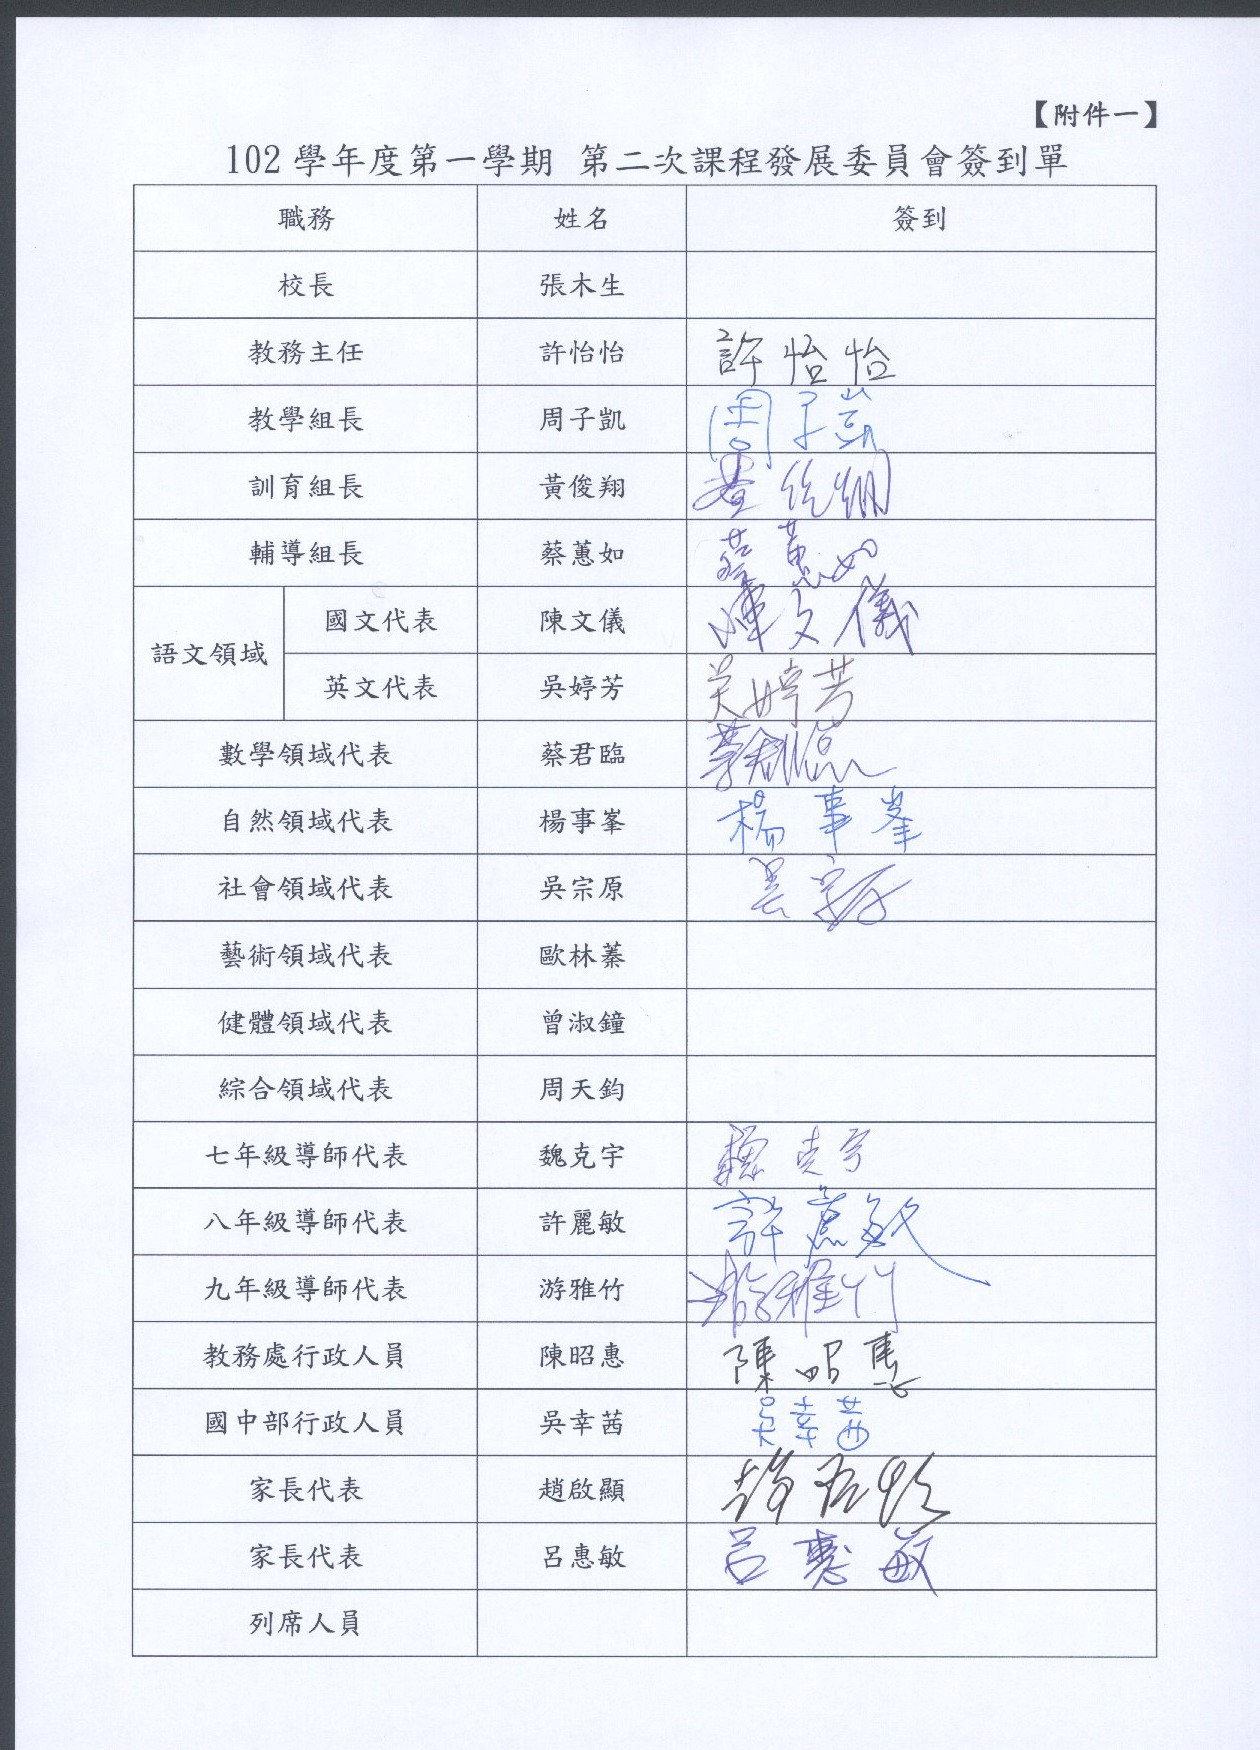 【附件一】
102 學年度第一學期 第二次課程發展委員會簽到單
職務 姓名 簽到
校長 張木生
教務主任 許怡怡 許怡怡
教學組長 周子凱 周子凱
訓育組長 黃俊翔 黃俊翔
輔導組長 蔡蕙如 蔡蕙如
語文領域
國文代表 陳文儀 陳文儀
英文代表 吳婷芳 吳婷芳
數學領域代表 蔡君臨 蔡君臨
自然領域代表 楊事峯 楊事峯
社會領域代表 吳宗原 吳宗原
藝術領域代表 歐林蓁
健體領域代表 曾淑鐘
綜合領域代表 周天鈞
七年級導師代表 魏克宇 魏克宇
八年級導師代表 許麗敏 許麗敏
九年級導師代表 游雅竹 游雅竹
教務處行政人員 陳昭惠 陳昭惠
國中部行政人員 吳幸茜 吳幸茜
家長代表 趙啟顯 趙啟顯
家長代表 呂惠敏 呂惠敏
列席人員